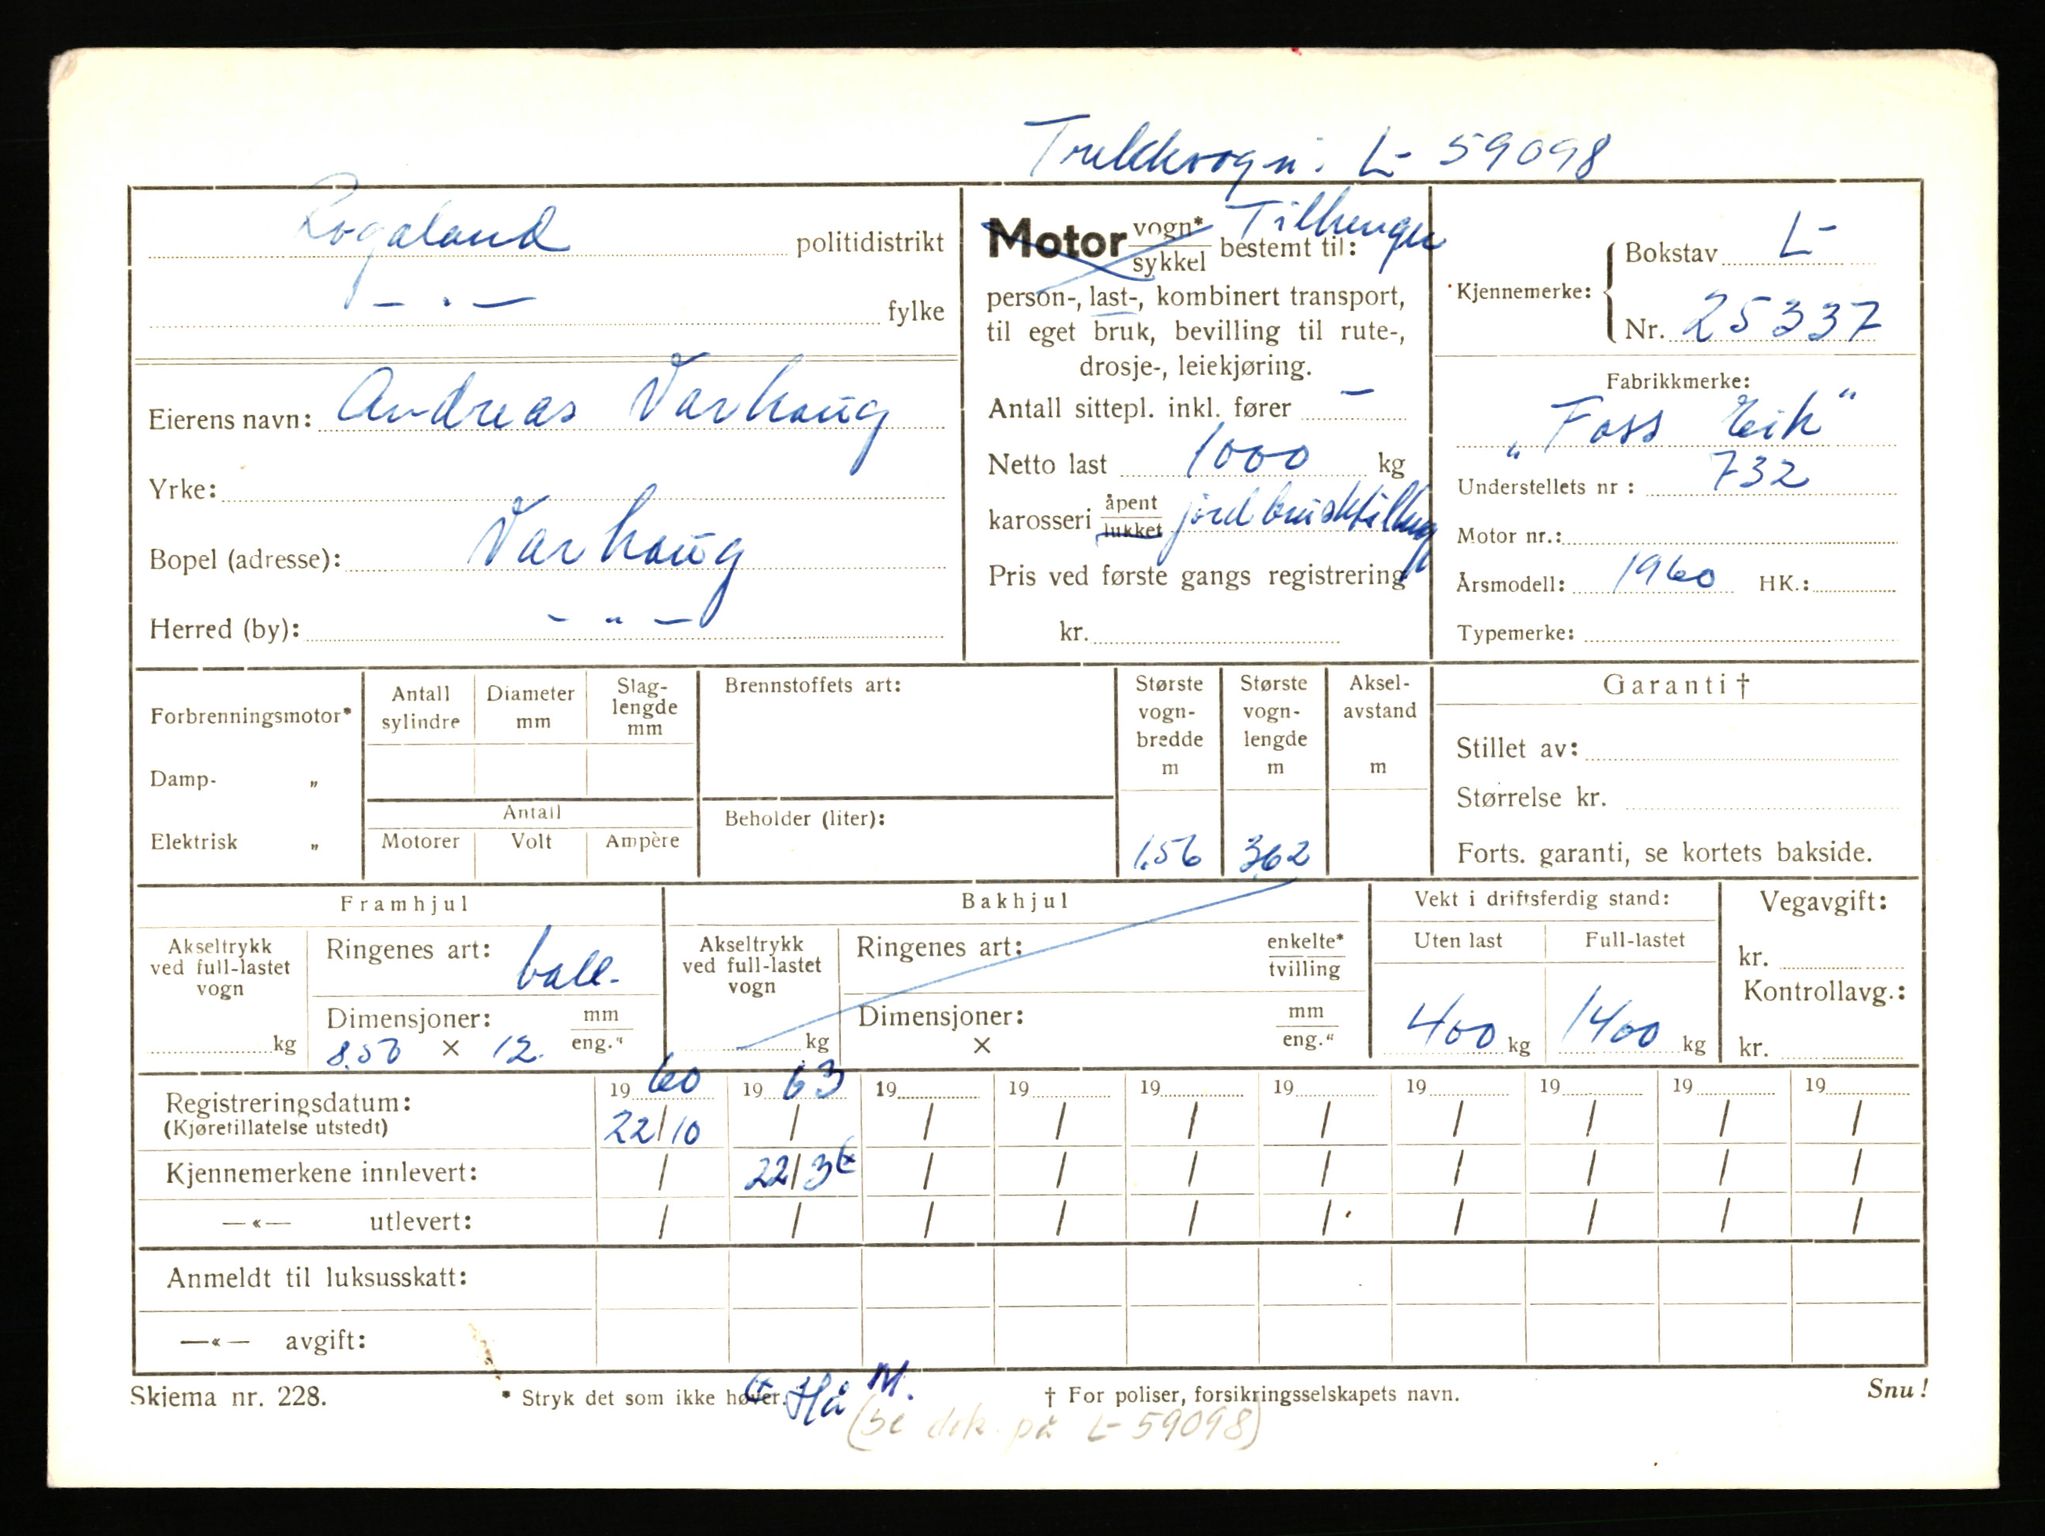 Trekkvogn: L- 59098
Rogaland politidistrikt
— . — fylke
Eierens navn: Andreas Varhaug
Yrke:
Bopel (adresse): Varhaug
Herred (by): - " -
Motor vogn* / sykkel bestemt til: Tilhenger
person-, last-, kombinert transport,
til eget bruk, bevilling til rute-,
drosje-, leiekjøring.
Antall sittepl. inkl. fører —
Netto last 1000 kg
karosseri åpent / lukket jordbrukstilheng
Pris ved første gangs registrering
kr.
Kjennemerke: Bokstav L-
Nr. 25337
Fabrikkmerke:
„Foss Eik“
Understellets nr: 732
Motor nr.:
Årsmodell: 1960 HK.:
Typemerke:
Forbrenningsmotor*
Damp- „
Elektrisk „
Antall sylindre
Diameter mm
Slag-lengde mm
Antall
Motorer Volt Ampère
Brennstoffets art:
Beholder (liter):
Største vogn-bredde m 1,56
Største vogn-lengde m 3,62
Aksel-avstand m
Garanti †
Stillet av:
Størrelse kr.
Forts. garanti, se kortets bakside.
Framhjul
Akseltrykk ved full-lastet vogn
kg
Ringenes art: ball-
Dimensjoner: mm / eng."
8.50 × 12.
Bakhjul
Akseltrykk ved full-lastet vogn
kg
Ringenes art: enkelte* / tvilling
Dimensjoner: mm / eng."
×
Vekt i driftsferdig stand:
Uten last Full-lastet
400 kg 1400 kg
Vegavgift:
kr.
Kontrollavg.:
kr.
Registreringsdatum: 19 60 19 63 19 19 19 19 19 19 19 19
(Kjøretillatelse utstedt) 22/10 / / / / / / / / /
Kjennemerkene innlevert: / 22/3 / / / / / / / /
—«— utlevert: / / / / / / / / / /
Anmeldt til luksusskatt:
—«— avgift:
Skjema nr. 228.
* Stryk det som ikke høver.
Hå M.
† For poliser, forsikringsselskapets navn.
Snu!
(se dek. på L-59098)